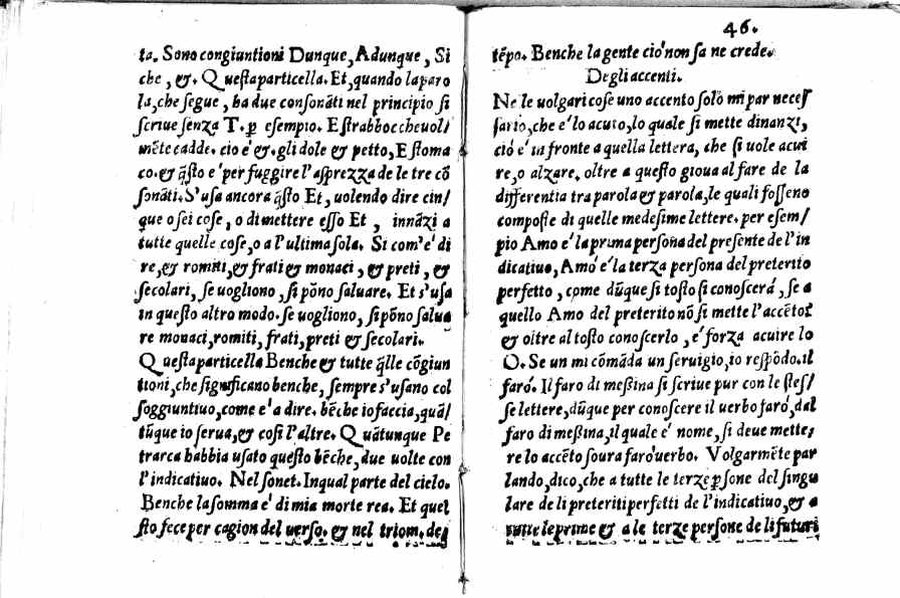 ta. Sono congiuntioni Dunque, Adunque, Si
che, &. Questa particella. Et, quando la paro
la, che segue, ha due consonāti nel principio si
scriue senza T. ꝑ esempio. E strabboccheuol/
mēte cadde. cio è &. gli dole & petto, E stoma
co. & q̄sto e' per fuggire l'asprezza de le tre cō
sonāti. S'usa ancora q̄sto Et, uolendo dire cin/
que o sei cose, o di mettere esso Et, innāzi a
tutte quelle cose, o a l'ultima sola. Si com'e' di
re, & romiti, & frati & monaci, & preti, &
secolari, se uogliono, si pōno saluare. Et s'usa
in questo altro modo. se uogliono, si pōno salua
re monaci, romiti, frati, preti & secolari.
Questa particella Benche & tutte q̄lle cōgiun
tioni, che significano benche, sempre s'usano col
soggiuntiuo, come e' a dire. bēche io faccia, quā/
tūque io serua, & cosi l'altre. Quātunque Pe
trarca habbia usato questo bēche, due uolte con
l'indicatiuo. Nel sonet. In qual parte del cielo.
Benche la somma e' di mia morte rea. Et quel
sto fece per cagion del uerso. & nel triom. del
46.
tēpo. Benche la gente cio' non sa ne crede.
Degli accenti.
Ne le uolgari cose uno accento solo mi par necess
sario, che e' lo acuto, lo quale si mette dinanzi,
ciò e' in fronte a quella lettera, che si uole acui
re, o alzare. oltre a questo gioua al fare de la
differentia tra parola & parola, le quali fosseno
composte di quelle medesime lettere. per esem/
pio Amo e' la prima persona del presente de l'in
dicatiuo, Amo' e' la terza persona del preterito
perfetto, come dūque si tosto si conoscerá, se a
quello Amo del preterito nō si mette l'accēto?
& oltre al tosto conoscerlo, e' forza acuire lo
O. Se un mi comāda un seruigio, io respōdo. il
faro'. Il faro di messina si scriue pur con le stes/
se lettere, dūque per conoscere il uerbo faro', dal
faro di messina, il quale e' nome, si deue mette,
re lo accēto soura faro' uerbo. Volgarmēte par
lando, dico, che a tutte le terze ꝑsone del singu
lare de li preteriti perfetti de l'indicatiuo, & a
tutte le prime & a le terze persone de li futuri